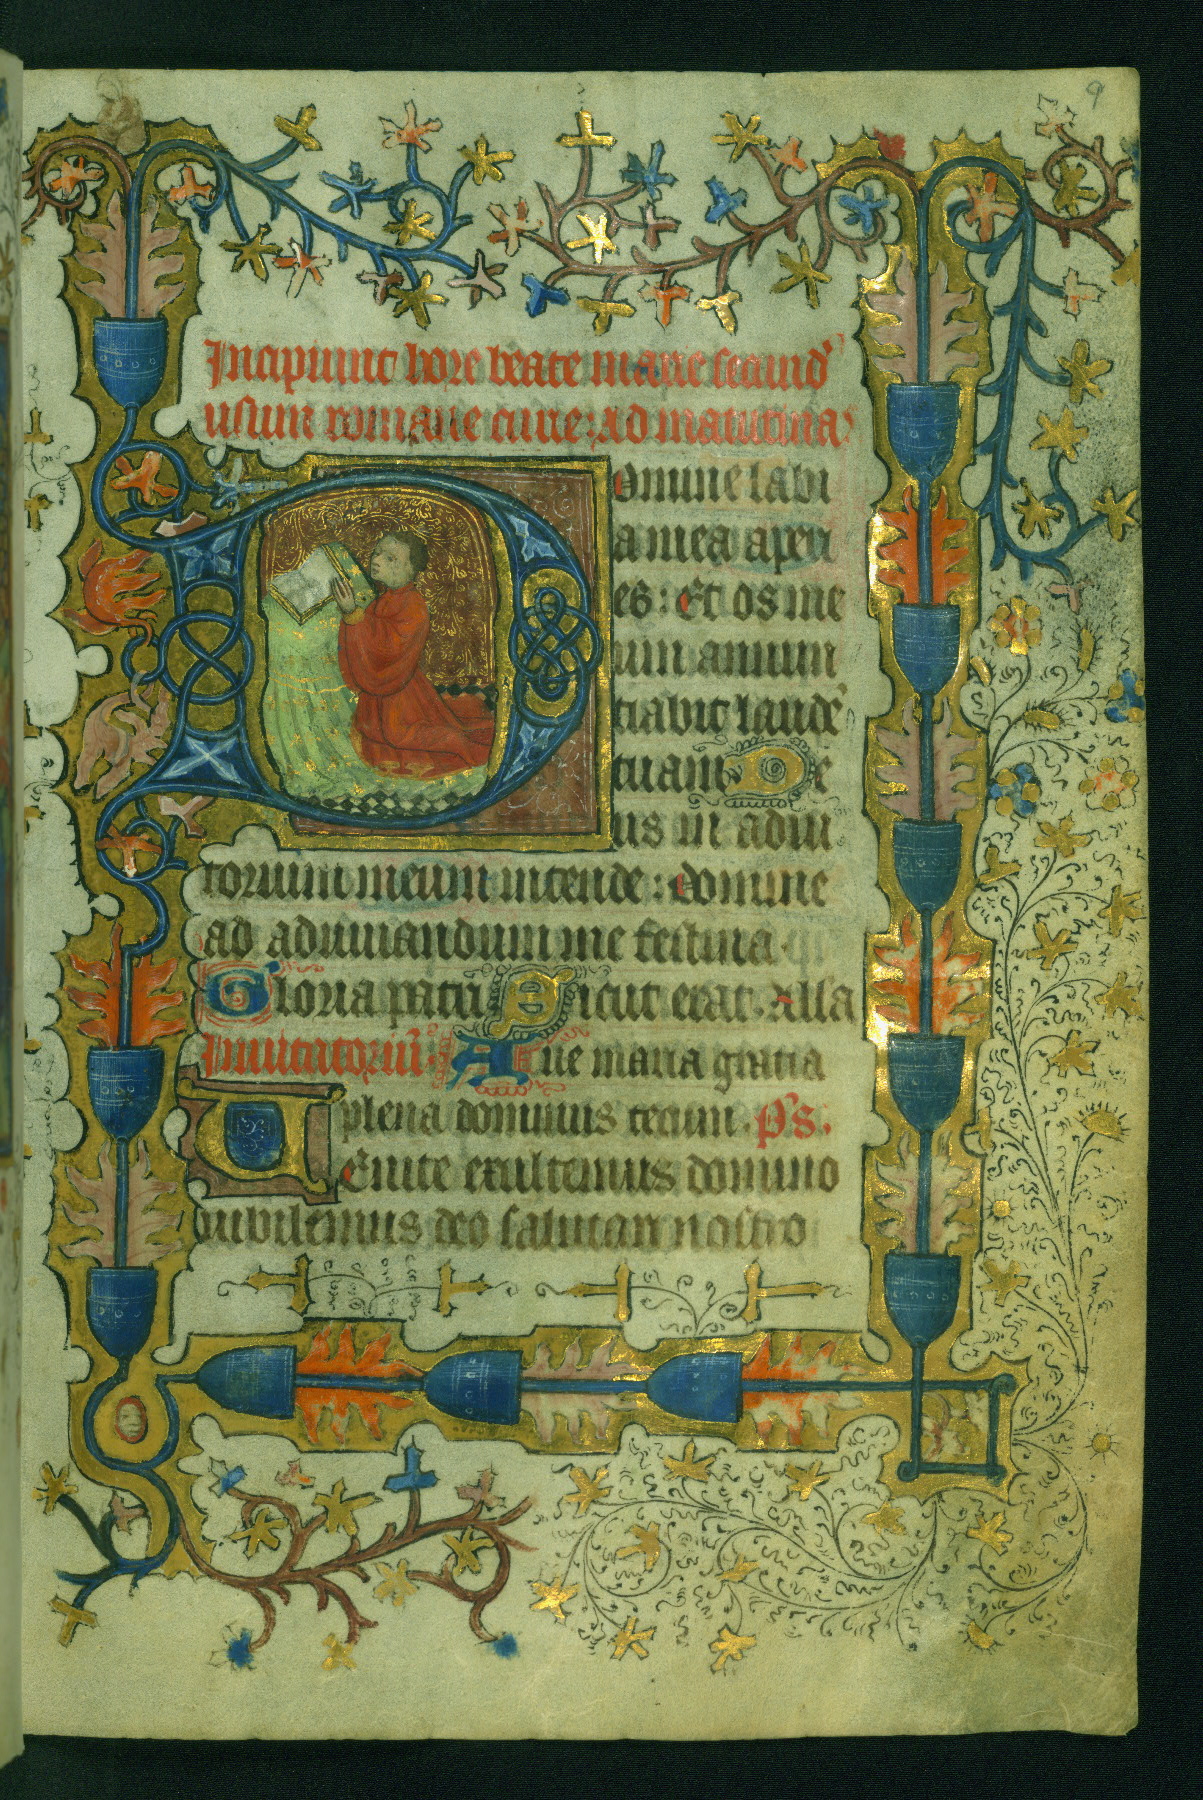 9
Incipiunt hore beate marie secund'
usum romane curie: Ad matutina:
Domine labi
a mea aperi
es: Et os me
um annun
tiabit laudē
tuam De
us in adiu
torium meum intende: domine
ad adiuuandum me festina
Gloria patri Sicut erat. Alla
Inuitatoriū. Aue maria gratia
plena dominus tecum. Ps.
Venite exultemus domino
iubilemus deo salutari nostro